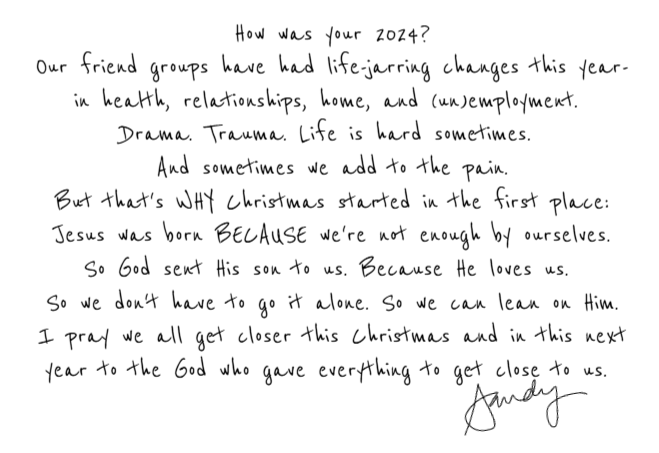 How was your 2024?
Our friend groups have had life-jarring changes this year-
in health, relationships, home, and (un)employment.
Drama. Trauma. Life is hard sometimes.
And sometimes we add to the pain.
But that's WHY Christmas started in the first place:
Jesus was born BECAUSE we're not enough by ourselves.
So God sent His son to us. Because He loves us.
So we don't have to go it alone. So we can lean on Him.
I pray we all get closer this Christmas and in this next
year to the God who gave everything to get close to us.
Sandy